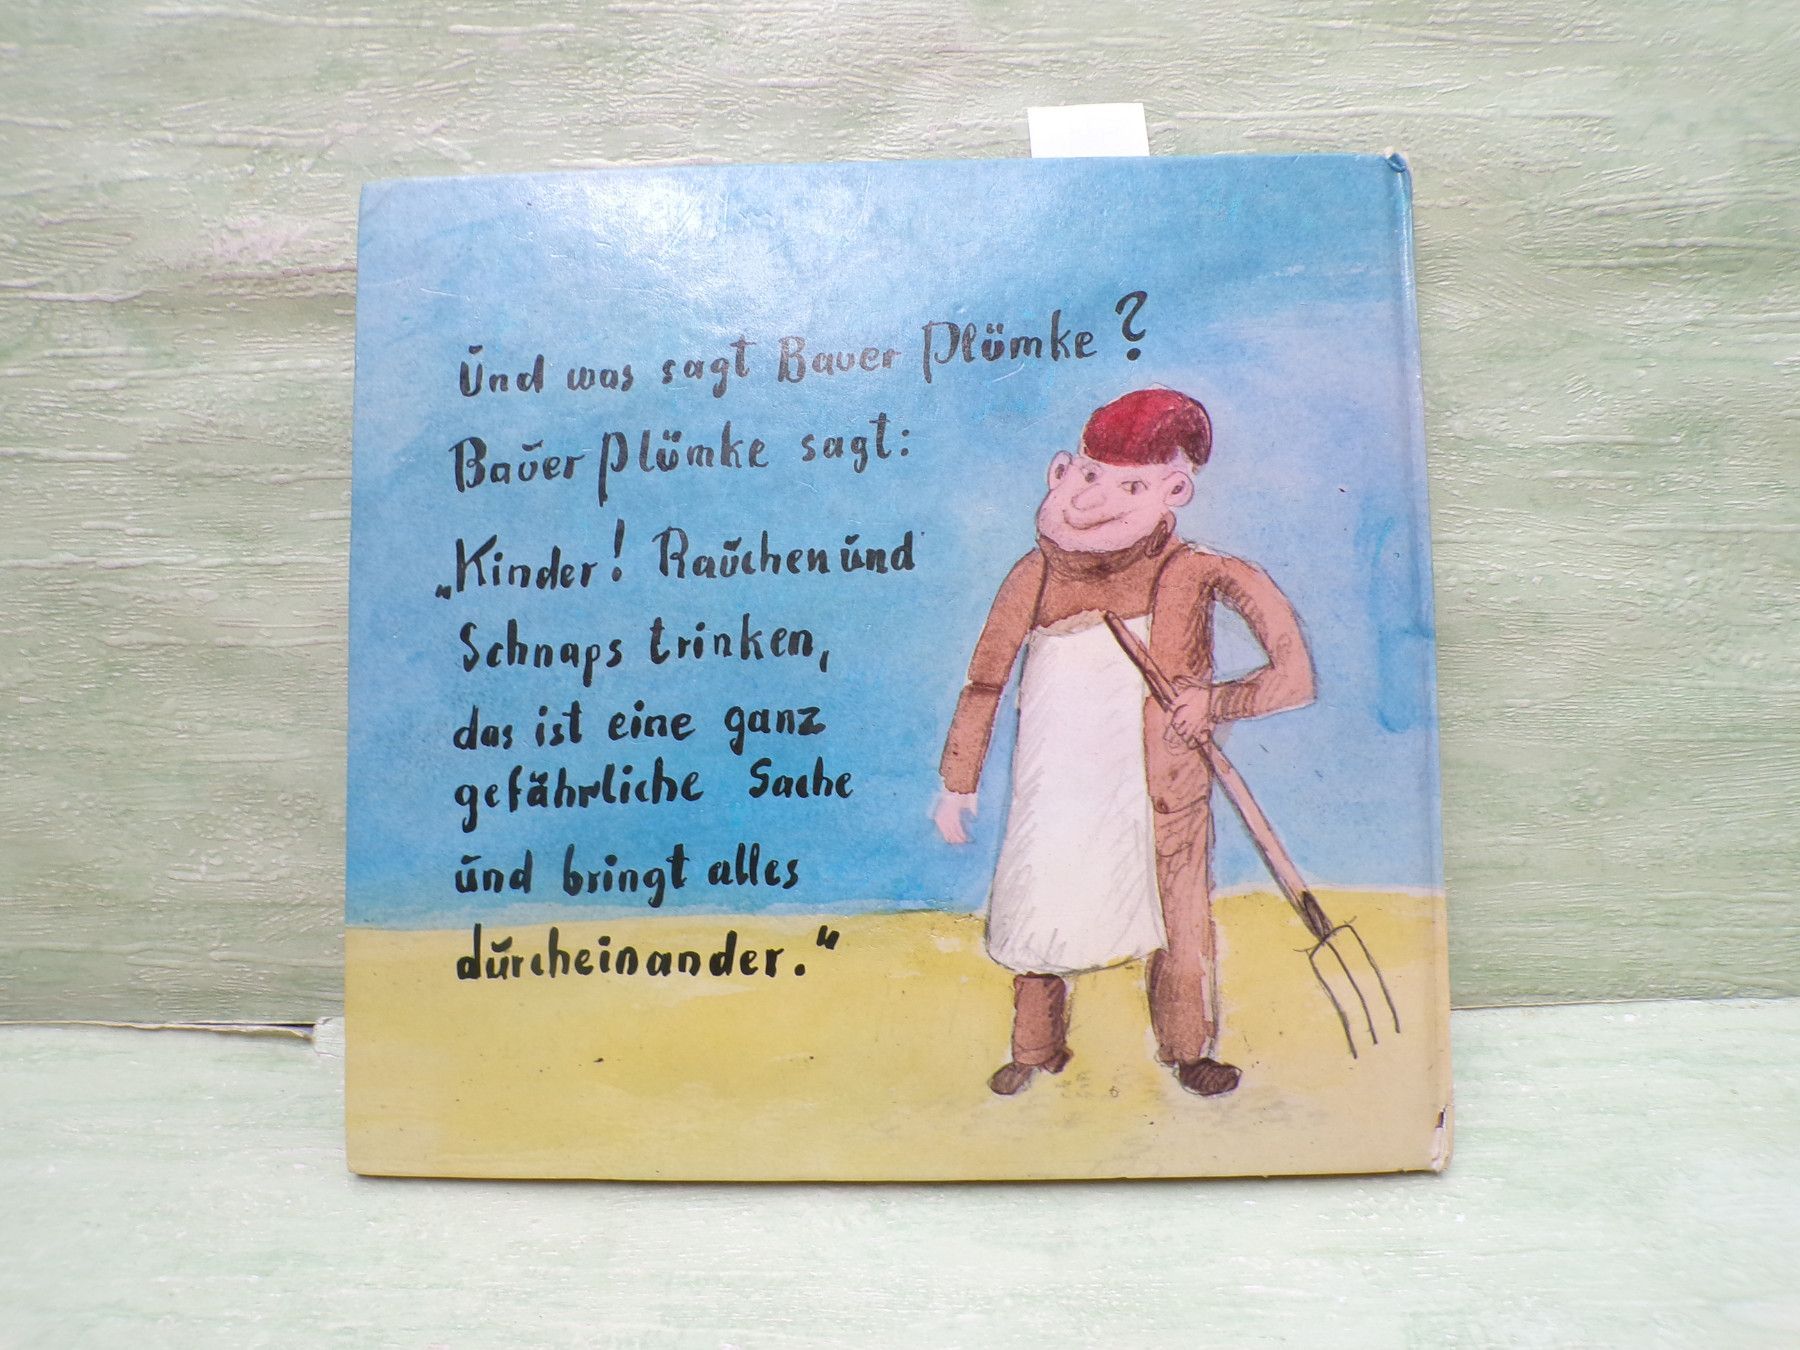 Und was sagt Bauer Plümke?
Bauer Plümke sagt:
„Kinder! Rauchen und
Schnaps trinken,
das ist eine ganz
gefährliche Sache
und bringt alles
durcheinander."